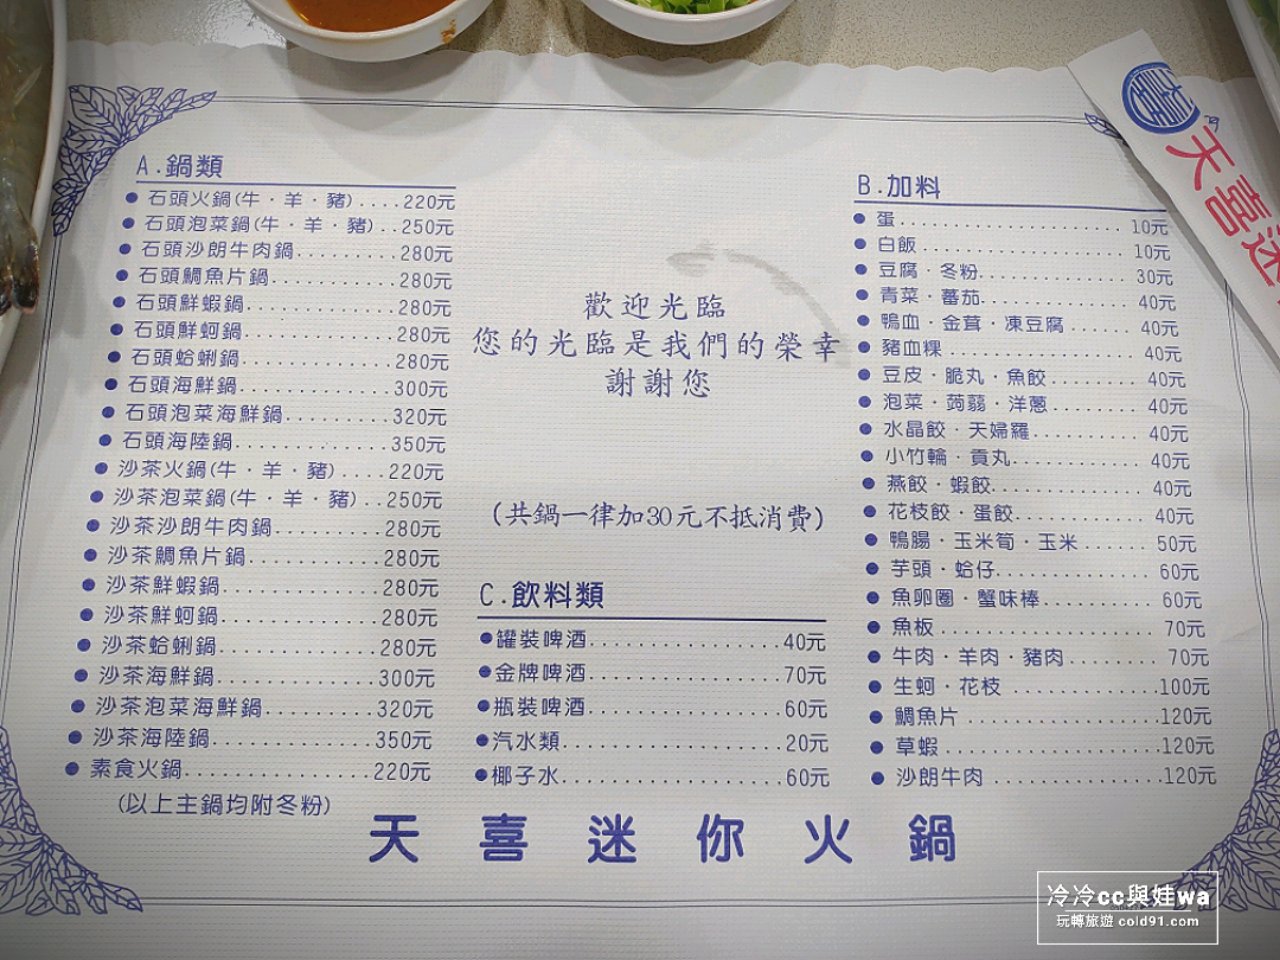 A.鍋類
●石頭火鍋(牛．羊．豬)....220元
●石頭泡菜鍋(牛．羊．豬)..250元
●石頭沙朗牛肉鍋.........280元
●石頭鯛魚片鍋...........280元
●石頭鮮蝦鍋.............280元
●石頭鮮蚵鍋.............280元
●石頭蛤蜊鍋.............280元
●石頭海鮮鍋.............300元
●石頭泡菜海鮮鍋.........320元
●石頭海陸鍋.............350元
●沙茶火鍋(牛．羊．豬)....220元
●沙茶泡菜鍋(牛．羊．豬)..250元
●沙茶沙朗牛肉鍋.........280元
●沙茶鯛魚片鍋...........280元
●沙茶鮮蝦鍋.............280元
●沙茶鮮蚵鍋.............280元
●沙茶蛤蜊鍋.............280元
●沙茶海鮮鍋.............300元
●沙茶泡菜海鮮鍋.........320元
●沙茶海陸鍋.............350元
●素食火鍋...............220元
(以上主鍋均附冬粉)
歡迎光臨
您的光臨是我們的榮幸
謝謝您
(共鍋一律加30元不抵消費)
C.飲料類
●罐裝啤酒.................40元
●金牌啤酒.................70元
●瓶裝啤酒.................60元
●汽水類...................20元
●椰子水...................60元
B.加料
●蛋.....................10元
●白飯...................10元
●豆腐．冬粉..............30元
●青菜．蕃茄..............40元
●鴨血．金茸．凍豆腐......40元
●豬血粿.................40元
●豆皮．脆丸．魚餃........40元
●泡菜．蒟蒻．洋蔥........40元
●水晶餃．天婦羅..........40元
●小竹輪．貢丸............40元
●燕餃．蝦餃..............40元
●花枝餃．蛋餃............40元
●鴨腸．玉米筍．玉米......50元
●芋頭．蛤仔..............60元
●魚卵圈．蟹味棒..........60元
●魚板...................70元
●牛肉．羊肉．豬肉........70元
●生蚵．花枝.............100元
●鯛魚片.................120元
●草蝦...................120元
●沙朗牛肉...............120元
天喜迷你火鍋
天喜迷
冷冷cc與娃wa
玩轉旅遊 cold91.com